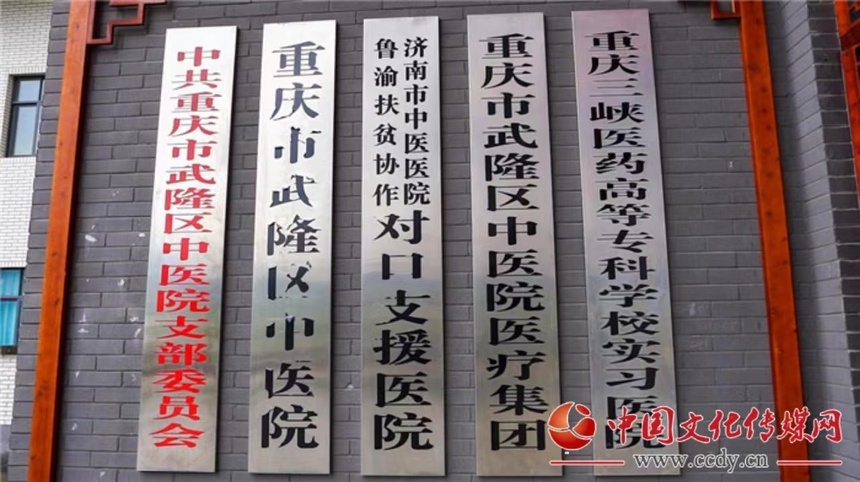 中共重庆市武隆区中医院支部委员会
重庆市武隆区中医院
济南市中医医院
鲁渝扶贫协作
对口支援医院
重庆市武隆区中医院医疗集团
重庆三峡医药高等专科学校实习医院
中国文化传媒网
www.ccdy.cn